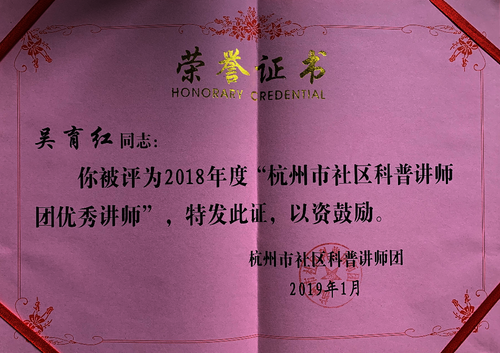 荣誉证书
HONORARY CREDENTIAL
吴育红同志:
你被评为2018年度“杭州市社区科普讲师
团优秀讲师”，特发此证，以资鼓励。
杭州市社区科普讲师团
2019年1月